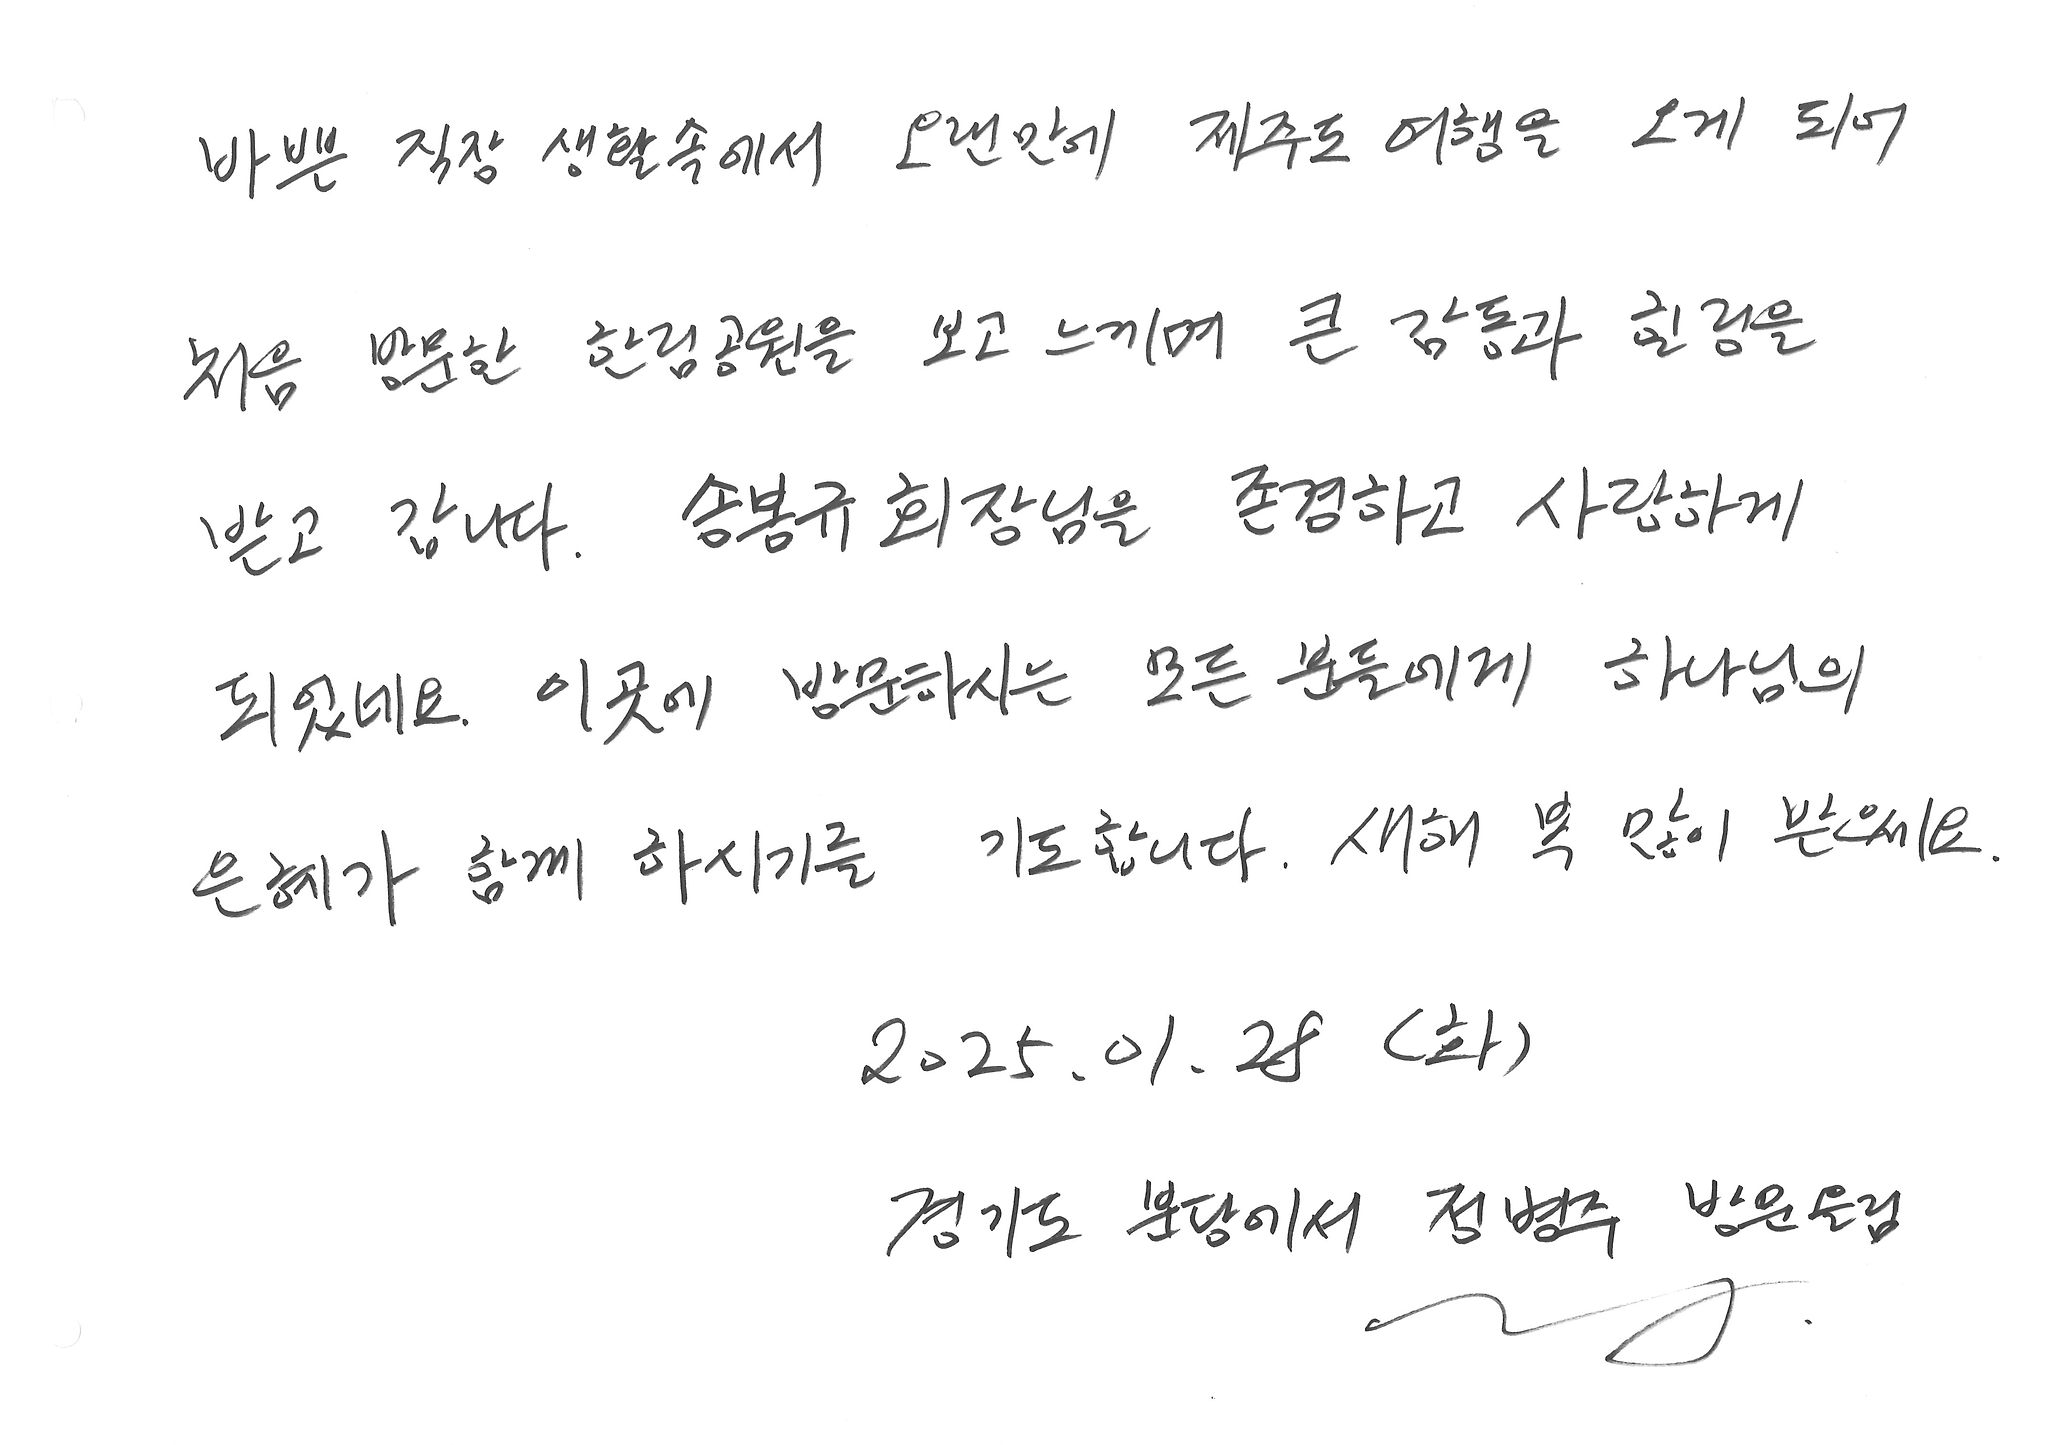 바쁜 직장 생활속에서 오랜만에 제주도 여행을 오게 되어
처음 방문한 한림공원을 보고 느끼며 큰 감동과 힐링을
받고 갑니다. 송봉규 회장님을 존경하고 사랑하게
되었네요. 이곳에 방문하시는 모든 분들에게 하나님의
은혜가 함께 하시기를 기도합니다. 새해 복 많이 받으세요.
2025.01.28 (화)
경기도 분당에서 정병주 방문올림